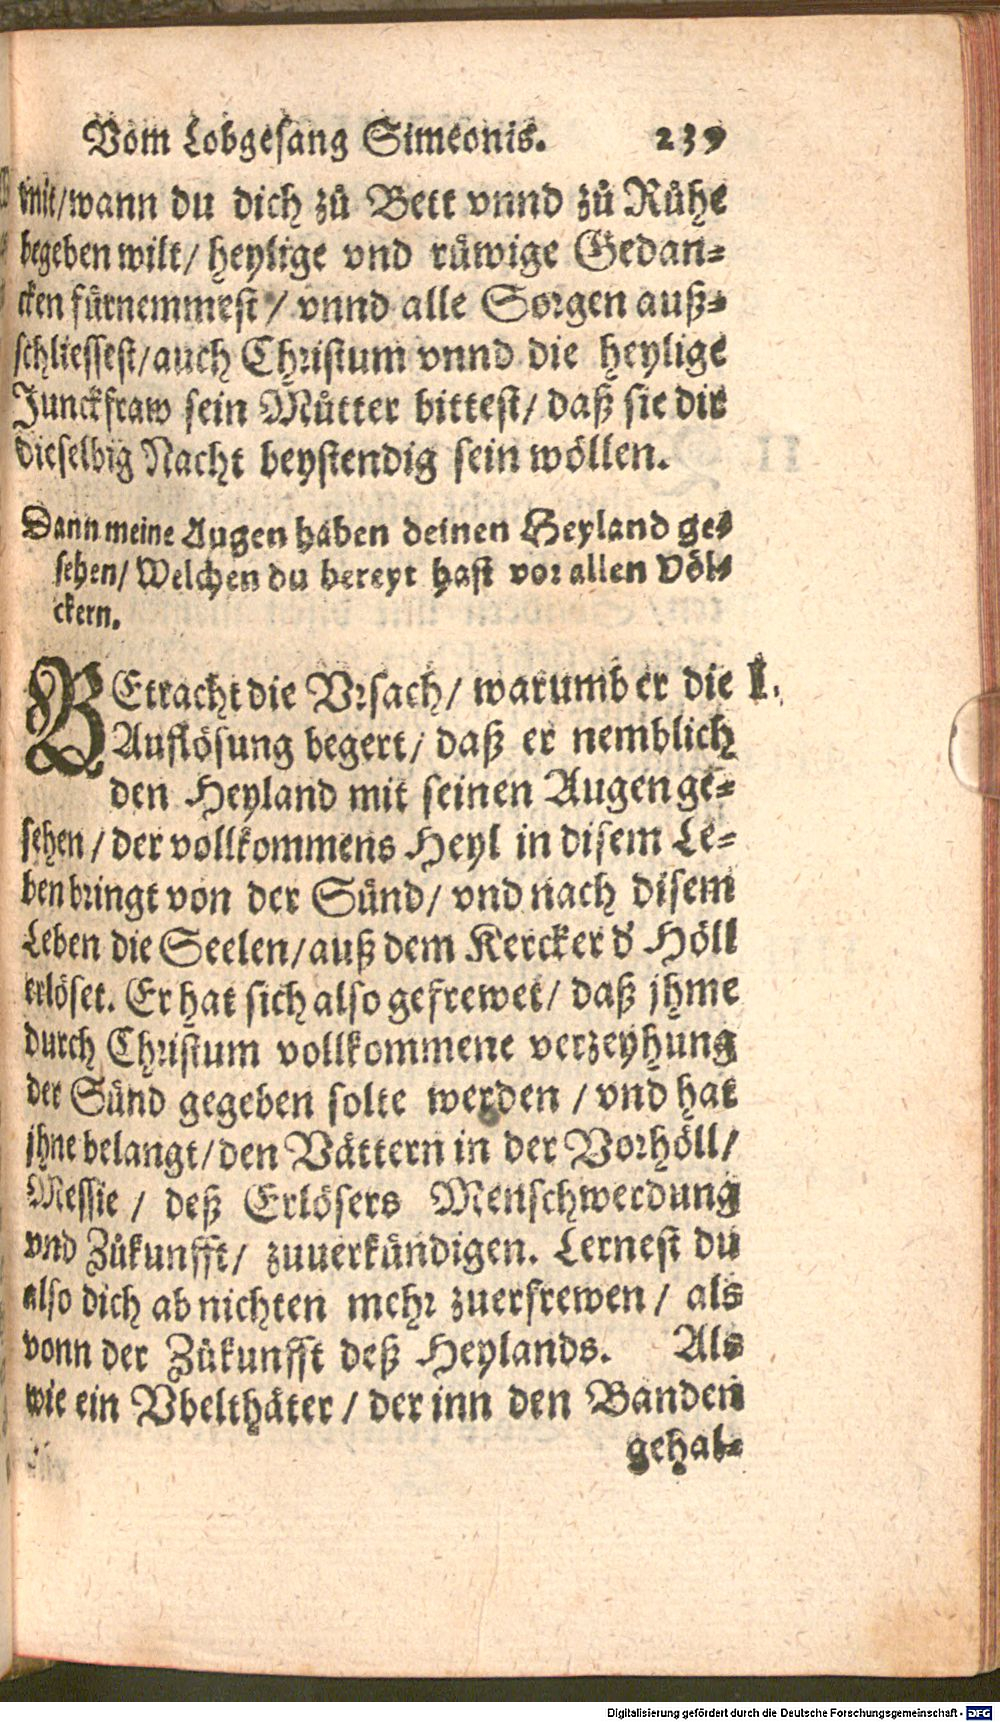 Vom Lobgesang Simeonis. 239
mit/wann du dich zů Bett vnnd zů Růhe
begeben wilt/ heylige vnd rüwige Gedan-
cken fürnemmest / vnnd alle Sorgen auß-
schliessest/auch Christum vnnd die heylige
Junckfraw sein Můtter bittest/ daß sie dir
dieselbig Nacht beystendig sein wöllen.
Dann meine Augen haben deinen Heyland ge-
sehen/ Welchen du bereyt hast vor allen Völ-
ckern.
BEtracht die Vrsach/ warumb er die I.
Auflösung begert/ daß er nemblich
den Heyland mit seinen Augen ge-
sehen / der vollkommens Heyl in disem Le-
ben bringt von der Sünd/ vnd nach disem
Leben die Seelen/auß dem Kercker d' Höll
erlöset. Er hat sich also gefrewet/ daß jhme
durch Christum vollkommene verzeyhung
der Sünd gegeben solte werden / vnd hat
jhne belangt/den Vättern in der Vorhöll/
Messie / deß Erlösers Menschwerdung
vnd Zůkunfft/ zuuerkündigen. Lernest du
also dich ab nichten mehr zuerfrewen/ als
vonn der Zůkunfft deß Heylands. Als
wie ein Vbelthäter / der inn den Banden
gehal-
Digitalisierung gefördert durch die Deutsche Forschungsgemeinschaft - DFG